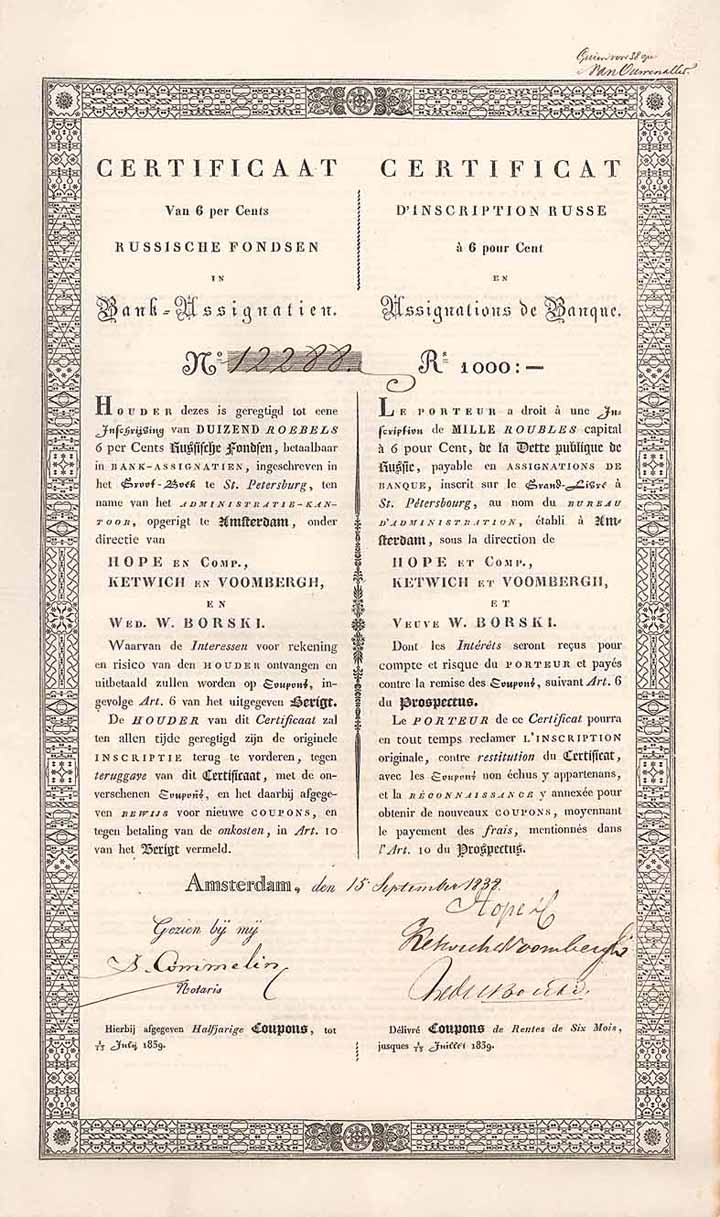 CERTIFICAAT
Van 6 per Cents
RUSSISCHE FONDSEN
IN
Bank-Assignatien.
CERTIFICAT
D'INSCRIPTION RUSSE
à 6 pour Cent
EN
Assignations de Banque.
No. 12288.
Rs 1000:—
HOUDER dezes is geregtigd tot eene
Inschrijving van DUIZEND ROEBELS
6 per Cents Russische Fondsen, betaalbaar
in BANK-ASSIGNATIEN, ingeschreven in
het Groot-Boek te St. Petersburg, ten
name van het ADMINISTRATIE-KAN-
TOOR, opgerigt te Amsterdam, onder
directie van
HOPE EN COMP.,
KETWICH EN VOOMBERGH,
EN
WED. W. BORSKI.
Waarvan de Interessen voor rekening
en risico van den HOUDER ontvangen en
uitbetaald zullen worden op Coupons, in-
gevolge Art. 6 van het uitgegeven Berigt.
De HOUDER van dit Certificaat zal
ten allen tijde geregtigd zijn de originele
INSCRIPTIE terug te vorderen, tegen
teruggave van dit Certificaat, met de on-
verschenen Coupons, en het daarbij afgege-
ven BEWIJS voor nieuwe COUPONS, en
tegen betaling van de onkosten, in Art. 10
van het Berigt vermeld.
LE PORTEUR a droit à une In-
scription de MILLE ROUBLES capital
à 6 pour Cent, de la Dette publique de
Russie, payable en ASSIGNATIONS DE
BANQUE, inscrit sur le Grand-Livre à
St. Pétersbourg, au nom du BUREAU
D'ADMINISTRATION, établi à Am-
sterdam, sous la direction de
HOPE ET COMP.,
KETWICH ET VOOMBERGH,
ET
VEUVE W. BORSKI.
Dont les Intérêts seront reçus pour
compte et risque du PORTEUR et payés
contre la remise des Coupons, suivant Art. 6
du Prospectus.
Le PORTEUR de ce Certificat pourra
en tout temps reclamer L'INSCRIPTION
originale, contre restitution du Certificat,
avec les Coupons non échus y appartenans,
et la RÉCONNAISSANCE y annexée pour
obtenir de nouveaux COUPONS, moyennant
le payement des frais, mentionnés dans
l'Art. 10 du Prospectus.
Amsterdam, den 15 September 183
Gezien bij mij
J. Commelin
Notaris
Hope &C
Ketwich & Voombergh
Wed. W. Borski
Hierbij afgegeven Halfjarige Coupons, tot
1/13 Julij 1839.
Délivré Coupons de Rentes de Six Mois,
jusques 1/13 Juillet 1839.